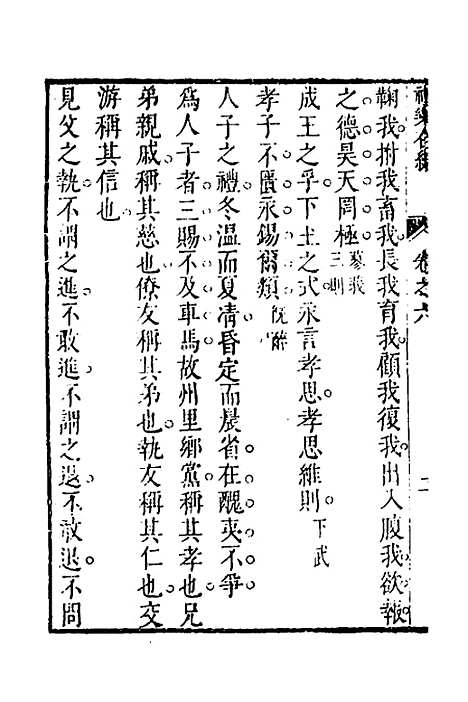 禮樂合編　卷之六　二
鞠我拊我畜我長我育我顧我復我出入腹我欲報
之德昊天罔極蓼莪三則
成王之孚下土之式永言孝思孝思維則下武
孝子不匱永錫爾類旣醉
人子之禮冬溫而夏凊昏定而晨省在醜夷不爭
爲人子者三賜不及車馬故州里鄉黨稱其孝也兄
弟親戚稱其慈也僚友稱其弟也執友稱其仁也交
游稱其信也
見父之執不謂之進不敢進不謂之退不敢退不問